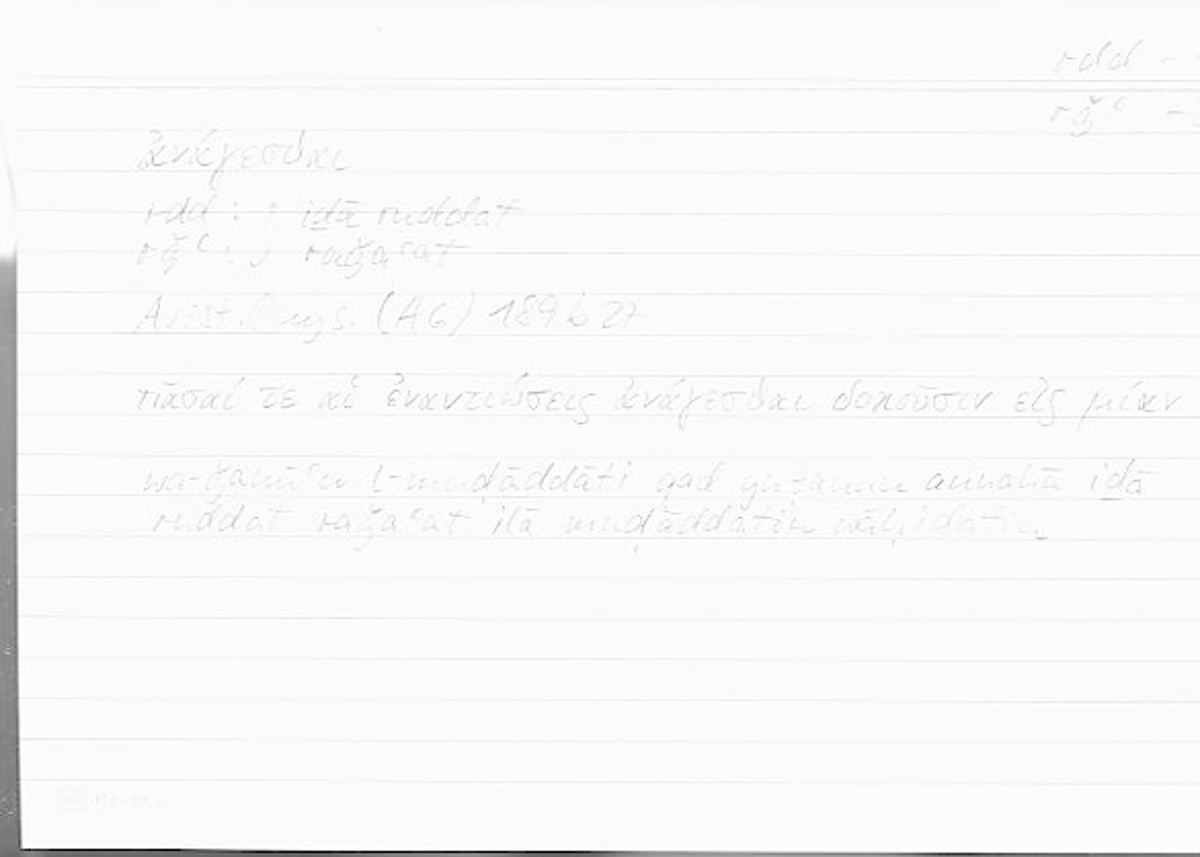 rdd -
rǧʿ -
ἀνάγεσθαι
rdd : } iḏā ruddat
rǧʿ : } raǧaʿat
Arist. Phys. (AG) 189 b 27
πᾶσαί τε αἱ ἐναντιώσεις ἀνάγεσθαι δοκοῦσιν εἰς μίαν
wa-ǧamīʿu l-muḍāddāti qad yuẓannu annahā iḏā
ruddat raǧaʿat ilā muḍāddatin wāḥidatin